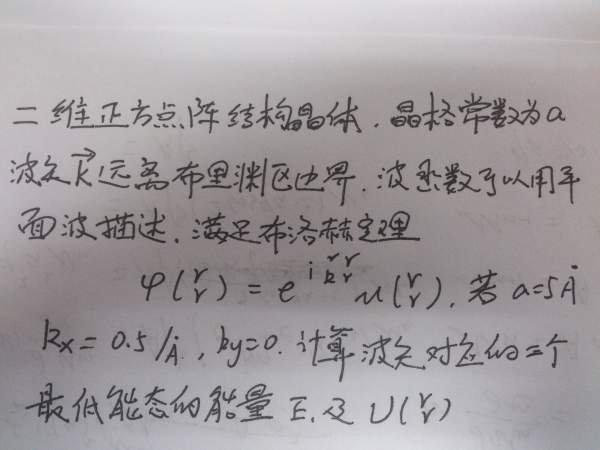 二维正方点阵结构晶体，晶格常数为a
波矢k⃗远离布里渊区边界，波函数可以用平
面波描述，满足布洛赫定理
φ(r r) = e^{i k r r r} u(r r)，若 a=5Å
kx = 0.5/Å，ky=0. 计算波矢对应的三个
最低能态的能量E，及U(r r)